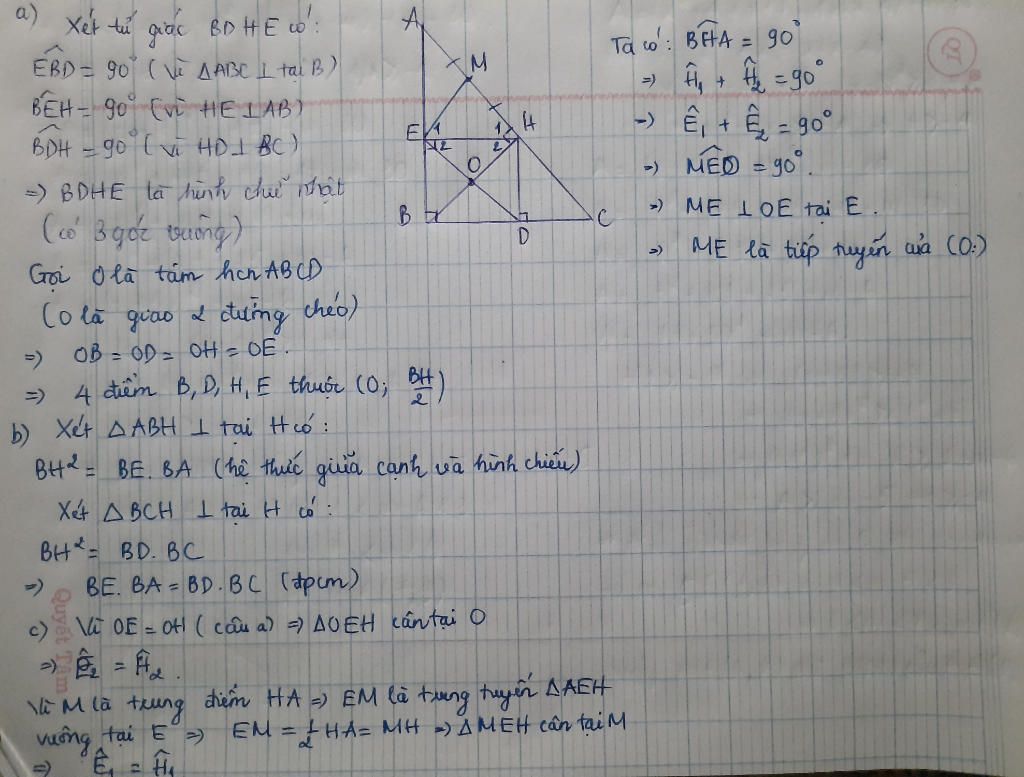 a) Xét tứ giác BDHE có:
EBD̂ = 90° (vì ΔABC ⊥ tại B)
BEĤ = 90° (vì HE ⊥ AB)
BDĤ = 90° (vì HD ⊥ BC)
=> BDHE là hình chữ nhật
(có 3 góc vuông)
Gọi O là tâm hcn ABCD
(O là giao 2 đường chéo)
=> OB = OD = OH = OE.
=> 4 điểm B, D, H, E thuộc (O; BH/2)
b) Xét ΔABH ⊥ tại H có:
BH² = BE. BA (hệ thức giữa cạnh và hình chiếu)
Xét ΔBCH ⊥ tại H có:
BH² = BD. BC
=> BE. BA = BD. BC (đpcm)
c) Vì OE = OH (câu a) => ΔOEH cân tại O
=> Ê₂ = Ĥ₂.
Vì M là trung điểm HA => EM là trung tuyến ΔAEH
vuông tại E => EM = 1/2 HA = MH => ΔMEH cân tại M
=> Ê₁ = Ĥ₁
A
M
E 1 2
1 2 H
O
B
D
C
Ta có: BHÂ = 90°
=> Ĥ₁ + Ĥ₂ = 90°
=> Ê₁ + Ê₂ = 90°
=> MEÔ = 90°.
=> ME ⊥ OE tại E.
=> ME là tiếp tuyến của (O;)
Quyết Tâm